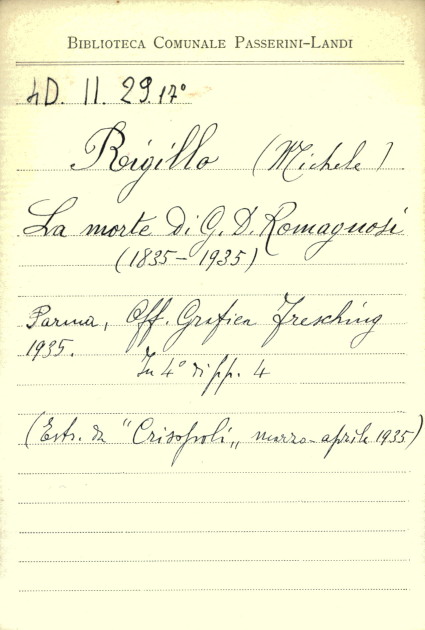 BIBLIOTECA COMUNALE PASSERINI-LANDI
4D. II. 29.17°
Rigillo (Michele)
La morte di G. D. Romagnosi
(1835-1935)
Parma, Off. Grafica Fresching
1935.
In 4° di pp. 4
(Estr. da "Crisopoli„ marzo-aprile 1935)